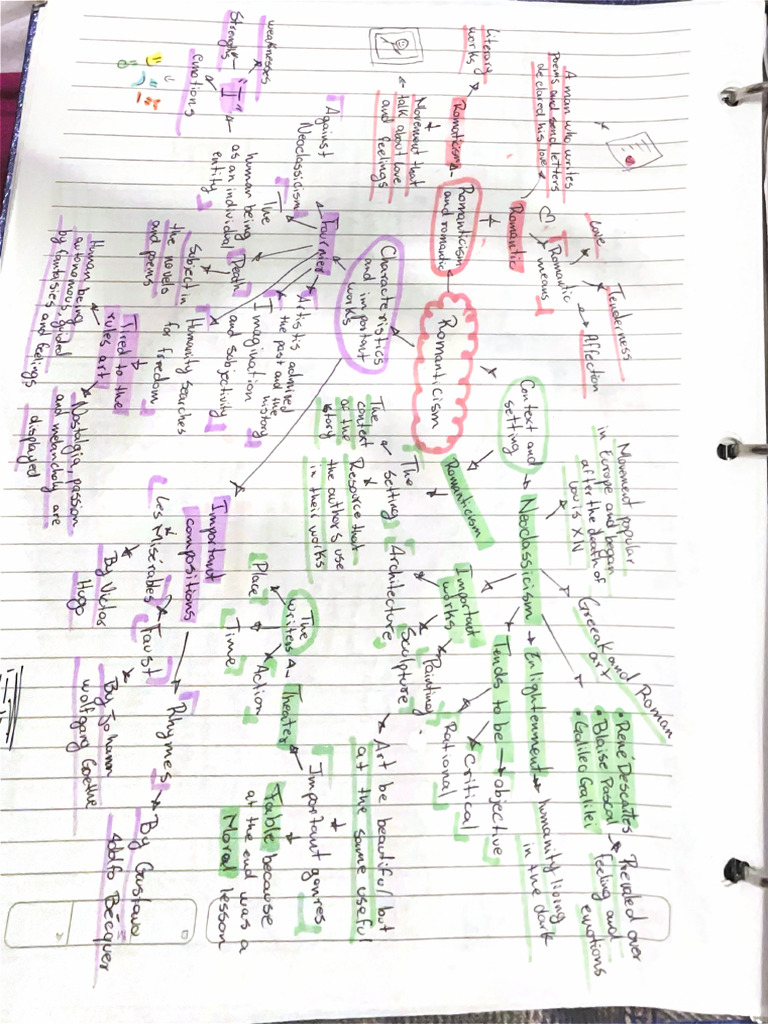 Romanticism
Romanticism
and romantic
Romanticism
Literary
works
Movement that
talk about love
and feelings
Romantic
A man who writes
Poems and send letters
declared his love
Romantic
means
Love
Tenderness
Affection
Context and
setting
Neoclassicism
Movement popular
in Europe and began
after the death of
Louis XIV
Greeak and Roman
art
• René Descartes
• Blaise Pascal
• Galileo Galilei
Prevaled over
feeling and
emotions
Enlightenment
humanity living
in the dark
Tends to be
objective
Critical
Rational
Important
works
Painting
Sculpture
Architecture
Art be beautiful but
at the same useful
Romanticism
The
setting
The
context
of the
story
Resource that
the authors use
in their works
The
writers
Place
Time
Action
Theater
Important genres
Fable because
at the end was a
Moral lesson
Characteristics
and important
works
Against
Neoclassicism
The
human being
as an individual
entity
"I"
Strengths
weaknesses
Emotions
Death
Subject in
the novels
and poems
Artistis admired
the past and the
history
Imagination
and subjectivity
Humanity searches
for freedom
Tired to the
rules art
Human being
autonomous, guided
by fantaisies and feelings
Nostalgia, passion
and melancholy are
displayed
Important
compositions
Les Misérables
By Victor
Hugo
Faust
By Johann
wolfgang Goethe
Rhymes
By Gustavo
Adolfo Bécquer